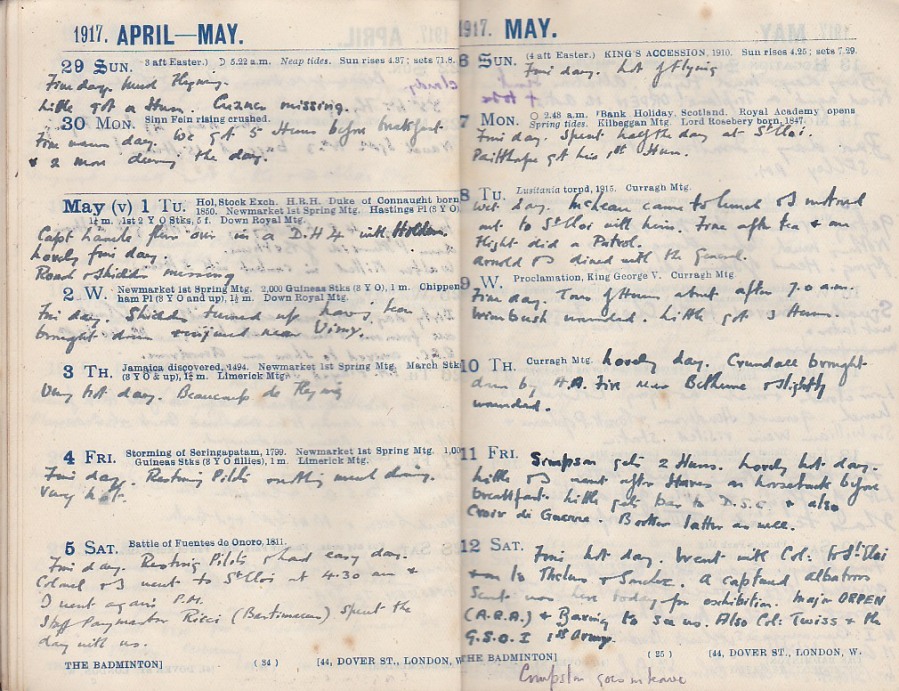 1917. APRIL—MAY.
29 SUN. 3 aft Easter.) ☽ 5.22 a.m. Neap tides. Sun rises 4.37; sets 71.8.
Fine day. Much Flying.
Little got a Hun. Cuzner missing.
30 MON. Sinn Fein rising crushed.
Fine warm day. We got 5 Huns before breakfast
& 2 more during the day.
May (v) 1 TU. Hol, Stock Exch. H.R.H. Duke of Connaught born
1850. Newmarket 1st Spring Mtg. Hastings Pl (3 Y O)
1½ m. 1st 2 Y O Stks, 5 f. Down Royal Mtg.
Capt flew over in a D.H.4 with Holden.
Lovely fine day.
Road & Shidds missing
2 W. Newmarket 1st Spring Mtg. 2,000 Guineas Stks (3 Y O), 1 m. Chippen
ham Pl (3 Y O and up), 1½ m. Down Royal Mtg.
Fine day. Shidds turned up having been
brought down & injured near Vimy.
3 TH. Jamaica discovered, 1494. Newmarket 1st Spring Mtg. March Stk
(3 Y O & up), 1¾ m. Limerick Mtg.
Very hot day. Beaucoup de Flying
4 FRI. Storming of Seringapatam, 1799. Newmarket 1st Spring Mtg. 1,00
Guineas Stks (3 Y O fillies), 1 m. Limerick Mtg.
Fine day. Resting Pilots mostly much diving.
Very hot.
5 SAT. Battle of Fuentes de Onoro, 1811.
Fine day. Resting Pilots & had easy day.
Colonel & I went to St Eloi at 4.30 am &
I went again P.M.
Staff Paymaster Ricci (Bartimaeus) spent the
day with us.
THE BADMINTON] ( 34 ) [44, DOVER ST., LONDON, W
1917. MAY.
6 SUN. (4 aft Easter.) KING'S ACCESSION, 1910. Sun rises 4.25; sets 7.29.
Fine day. Lot of flying
7 MON. ○ 2.43 a.m. Bank Holiday, Scotland. Royal Academy opens
Spring tides. Kilbeggan Mtg. Lord Rosebery born, 1847.
Fine day. Spent half the day at St Eloi.
Paitthorpe got his 1st Hun.
8 TU. Lusitania torpd, 1915. Curragh Mtg.
Wet day. McLean came to lunch & I motored
out to St Eloi with him. Fine after tea & one
Flight did a Patrol.
Arnold & I dined with the General.
9 W. Proclamation, King George V. Curragh Mtg.
Fine day. Tons of Huns about after 7.0 a.m.
Wimbush wounded. Little got 3 Huns.
10 TH. Curragh Mtg. Lovely day. Crundall brought
down by A.A. Fire near Bethune & slightly
wounded.
11 FRI. Simpson gets 2 Huns. Lovely hot day.
Little & I went after Hares on horseback before
breakfast. Little gets bar to D.S.C. & also
Croix de Guerre. Booker latter as well.
12 SAT. Fine hot day. Went with Col: to St Eloi
& on to Thelus & Souchez. A captured albatross
sent was here today for exhibition. Major ORPEN
(A.R.A.) & Baring to see us. Also Col: Twiss & the
G.S.O.I 1st Army.
THE BADMINTON] ( 25 ) [44, DOVER ST., LONDON, W.
Compston goes on leave